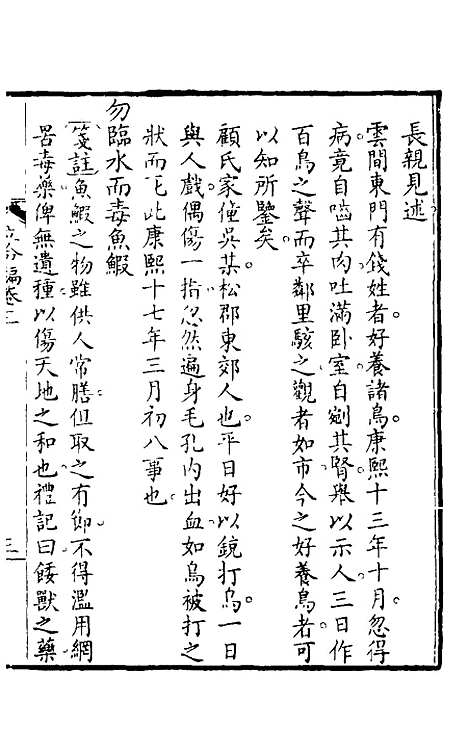 長親見述
雲間東門有錢姓者好養諸鳥康熙十三年十月忽得
病竟自嚙其肉吐滿臥室自剜其腎舉以示人三日作
百鳥之聲而卒鄰里駭之觀者如市今之好養鳥者可
以知所鑒矣
顧氏家僮吳某松郡東郊人也平日好以銃打鳥一日
與人戲偶傷一指忽然遍身毛孔內出血如鳥被打之
狀而死此康熙十七年三月初八事也
勿臨水而毒魚鰕
箋註魚鰕之物雖供人常膳但取之有節不得濫用網
罟毒藥俾無遺種以傷天地之和也禮記曰餧獸之藥
編卷三
三